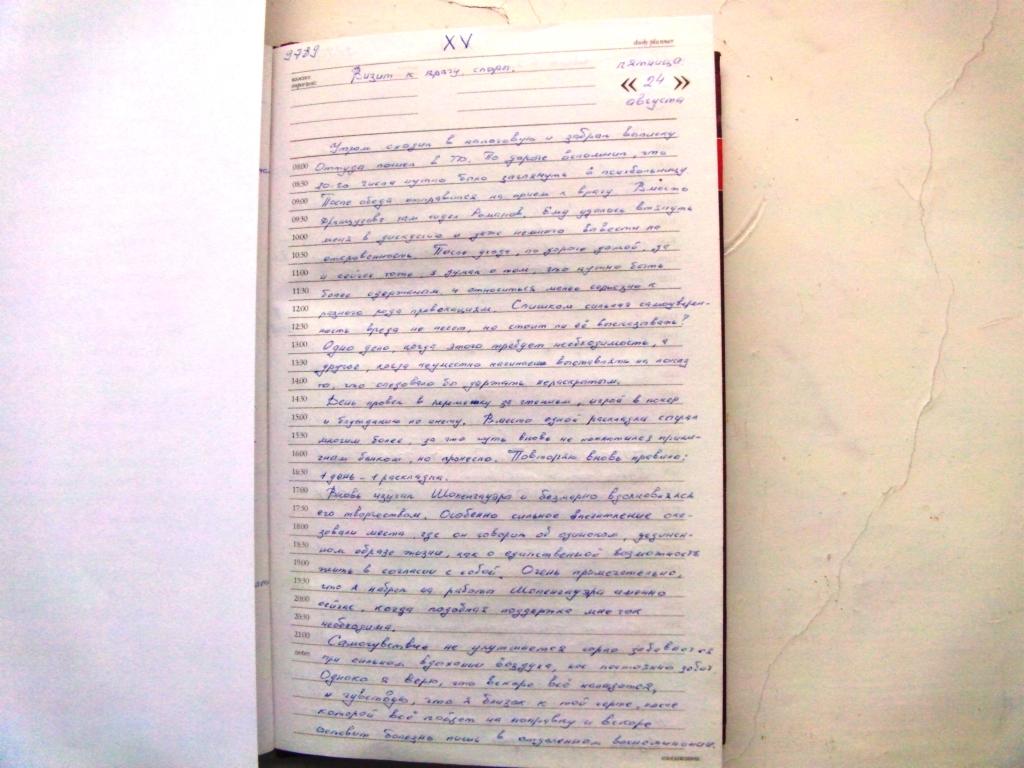 9739
XV
daily planner
Визит к врагу споры.
пятница
24
августа
Утром сходил в налоговую и забрал выписку
08:00 Оттуда пошел в По дороге вспомнил, что
08:30 20-го числа нужно было заглянуть в психбольницу
09:00 После обеда отправился на прием к врагу Вместо
09:30 там сидел Романов. Ему удалось втянуть
10:00 меня в дискуссию и даже немного вывести на
10:30 откровенность. После ухода, по дороге домой, да
11:00 и сейчас тоже, я думал о том, что нужно быть
11:30 более сдержаным и относиться менее серьезно к
12:00 разного рода провокациям. Слишком сильная самоуверен-
12:30 ность вреда не несет, но стоит ли её высказывать?
13:00 Одно дело, когда этого требует необходимость, а
13:30 другое, когда неуместно выставлять на показ
14:00 то, что следовало бы удержать нераскрытым.
14:30 День провел в перемежку за чтением, игрой в покер
15:00 и блужданию по инету. Вместо одной раскладки сыграл
15:30 многим более, за что чуть вновь не поплатился
16:00 банком, но пронесло. Повторяю вновь правило:
16:30 1 день - 1 раскладка.
17:00 Вновь изучал Шопенгауэра и безмерно вдохновлялся
17:30 его творчеством. Особенно сильное впечатление ока-
18:00 зывали места, где он говорит об одиноком, уединен-
18:30 ном образе жизни, как о единственной возможности
19:00 жить в согласии с собой. Очень примечательно,
19:30 что я набрел на работы Шопенгауэра именно
20:00 сейчас, когда подобная поддержка мне так
20:30 необходима.
21:00 Самочувствие не улучшается горло
notes при сильном вдыхании воздуха,
Однако я верю, что вскоре всё наладится,
и чувствую, что я близок к той черте, после
которой всё пойдет на поправку и вскоре
оставит болезнь лишь в отдаленном воспоминании.